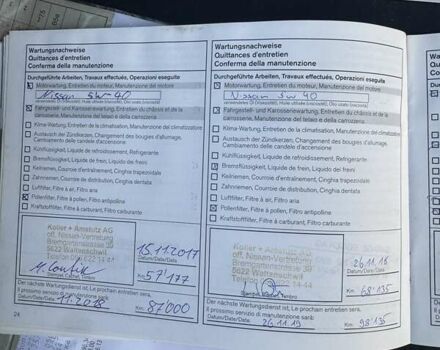 Wartungsnachweise
Quittances d'entretien
Conferma della manutenzione
Durchgeführte Arbeiten, Travaux effectués, Operazioni eseguite
Motorwartung, Entretien du moteur, Manutenzione del motore
Nissan 5W40
verwendetes Öl (Viskosität), Huile utilisée (viscosité), Olio usato (viscosità)
Fahrgestell- und Karosseriewartung, Entretien du châssis et de la
carrosserie, Manutenzione del telaio e della carrozzeria
Klima-Wartung, Entretien de la climatisation, Manutenzione del climatizzatore
Austausch der Zündkerzen, Changement des bougies d'allumage,
Cambiamento delle candele d'accensione
Kühlflüssigkeit, Liquide de refroidissement, Refrigerante
Bremsflüssigkeit, Liquide de freins, Liquido dei freni
Keilriemen, Courroie d'entraînement, Cinghia trapezoidale
Zahnriemen, Courroie de distribution, Cinghia dentata
Luftfilter, Filtre à air, Filtro aria
Pollenfilter, Filtre à pollen, Filtro antipolline
Kraftstofffilter, Filtre à carburant, Filtro carburante
Koller + Amstutz AG
off. Nissan-Vertretung
Bremgartenstrasse 39
5622 Waltenschwil
15.11.2017
Datum/Date/Data
Km 57'177
Der nächste Wartungsdienst ist, Le prochain entretien sera,
Il prossimo servizio di manutenzione sarà:
11.2018
Km 87'000
Datum/Date/Data
24
Wartungsnachweise
Quittances d'entretien
Conferma della manutenzione
Durchgeführte Arbeiten, Travaux effectués, Operazioni eseguite
Motorwartung, Entretien du moteur, Manutenzione del motore
Nissan 5W40
verwendetes Öl (Viskosität), Huile utilisée (viscosité), Olio usato (viscosità)
Fahrgestell- und Karosseriewartung, Entretien du châssis et de la
carrosserie, Manutenzione del telaio e della carrozzeria
Klima-Wartung, Entretien de la climatisation, Manutenzione del climatizzatore
Austausch der Zündkerzen, Changement des bougies d'allumage,
Cambiamento delle candele d'accensione
Kühlflüssigkeit, Liquide de refroidissement, Refrigerante
Bremsflüssigkeit, Liquide de freins, Liquido dei freni
Keilriemen, Courroie d'entraînement, Cinghia trapezoidale
Zahnriemen, Courroie de distribution, Cinghia dentata
Luftfilter, Filtre à air, Filtro aria
Pollenfilter, Filtre à pollen, Filtro antipolline
Kraftstofffilter, Filtre à carburant, Filtro carburante
Koller + Amstutz AG
off. Nissan-Vertretung
Bremgartenstrasse 39
5622 Waltenschwil
26.11.18
Datum/Date/Data
Km 68'135
Der nächste Wartungsdienst ist, Le prochain entretien sera,
Il prossimo servizio di manutenzione sarà:
26.11.19
Km 98'135
Datum/Date/Data